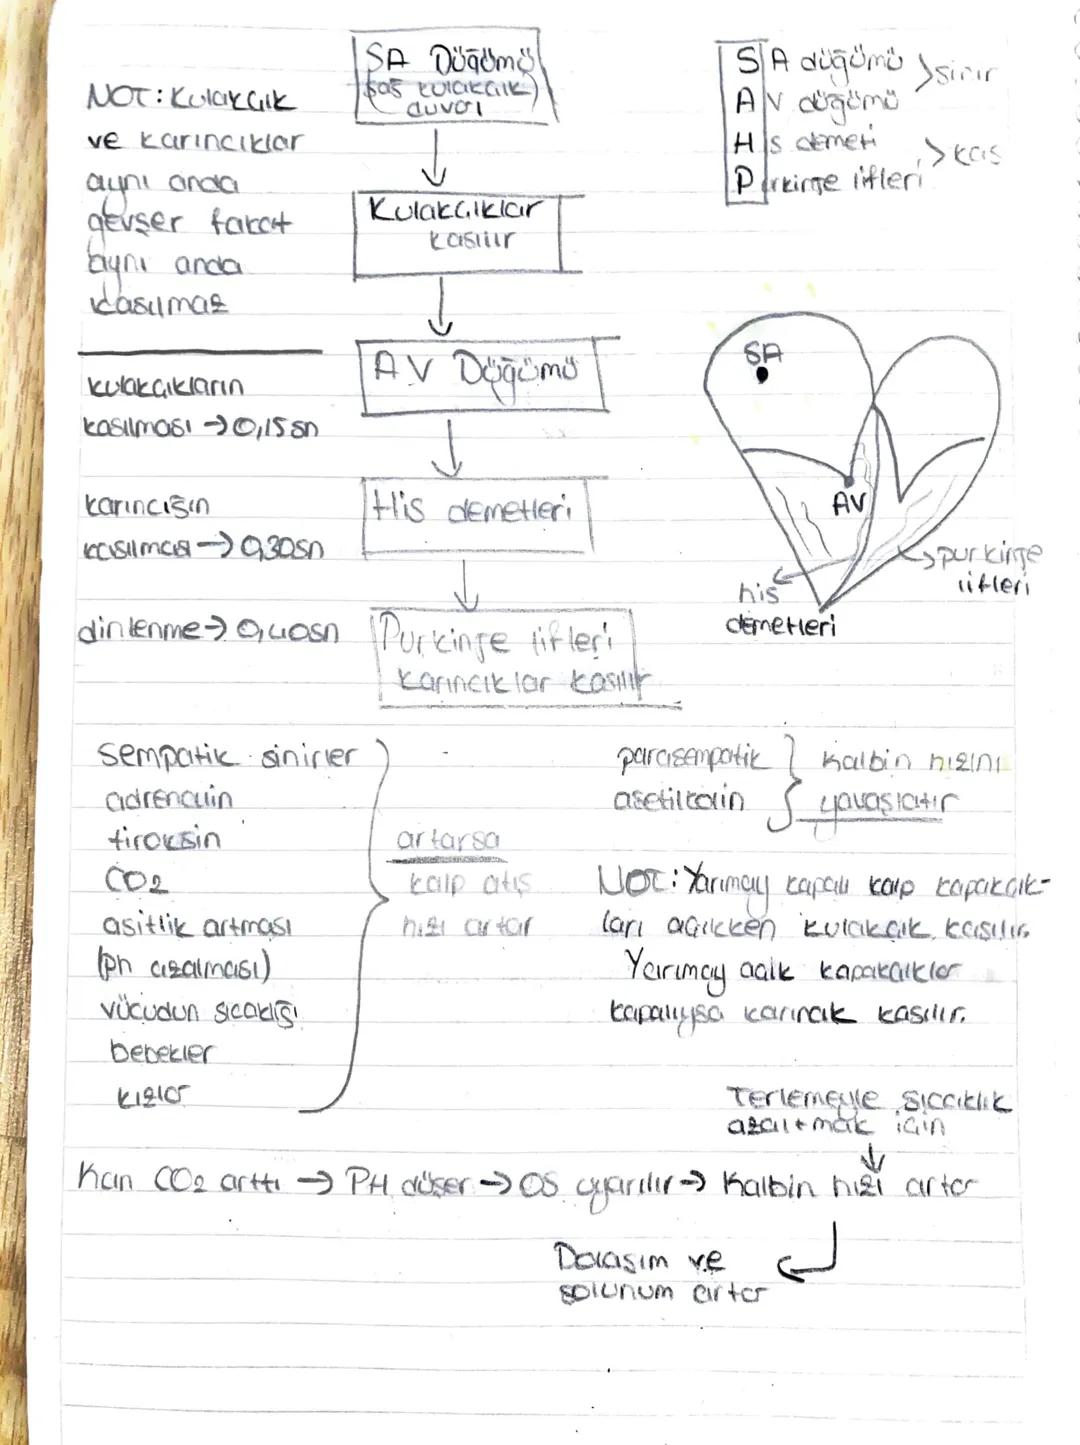 SA Düğümü
(sağ kulakçık)
duvarı
NOT: Kulakçık
ve karıncıklar
aynı anda
gevşer fakat
aynı anda
kasılmaz
Kulakçıklar
kasılır
AV Düğümü
His demetleri
Purkinje lifleri
karıncıklar kasılır
SA düğümü
AV düğümü
>sinir
His demeti
Purkinje lifleri
>kas
kulakçıkların
kasılması → 0,15 sn
karıncığın
kasılması → 0,30sn
dinlenme → 0,40sn
SA
AV
his
demetleri
purkinje
lifleri
sempatik sinirler
adrenalin
tiroksin
CO2
asitlik artması
(ph azalması)
vücudun sıcaklığı
bebekler
kızlar
artarsa
kalp atış
hızı artar
parasempatik
asetilkolin
kalbin hızını
yavaşlatır
NOT: Yarımay kapalı kalp kapakçık-
ları açıkken kulakçık kasılır.
Yarımay açık kapakçıklar
kapalıysa karıncık kasılır.
Terlemeyle sıcaklık
azaltmak için
Kan CO2 arttı → PH düşer → OS uyarılır → Kalbin hızı artar
Dolaşım ve
solunum artar